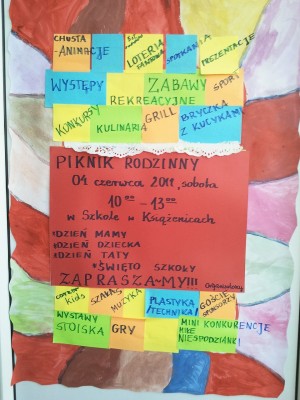 CHUSTA
-ANIMACJE
LOTERIA
FANTOWA
SPOTKANIA
PREZENTACJE
WYSTĘPY
ZABAWY
SPORT
REKREACYJNE
KONKURSY
KULINARIA
GRILL
BRYCZKA
Z KUCYKAMI
PIKNIK RODZINNY
04 czerwca 2011, sobota
10⁰⁰ - 13⁰⁰
w Szkole w Książnicach
*DZIEŃ MAMY
*DZIEŃ DZIECKA
*DZIEŃ TATY
*ŚWIĘTO SZKOŁY
ZAPRASZA-MY!!!
Organizatorzy
Kids
MUZYKA
PLASTYKA
/TECHNIKA/
GOŚCIE
SPONSORZY
WYSTAWY
STOISKA
GRY
MINI KONKURENCJE
MIŁE
NIESPODZIANKI